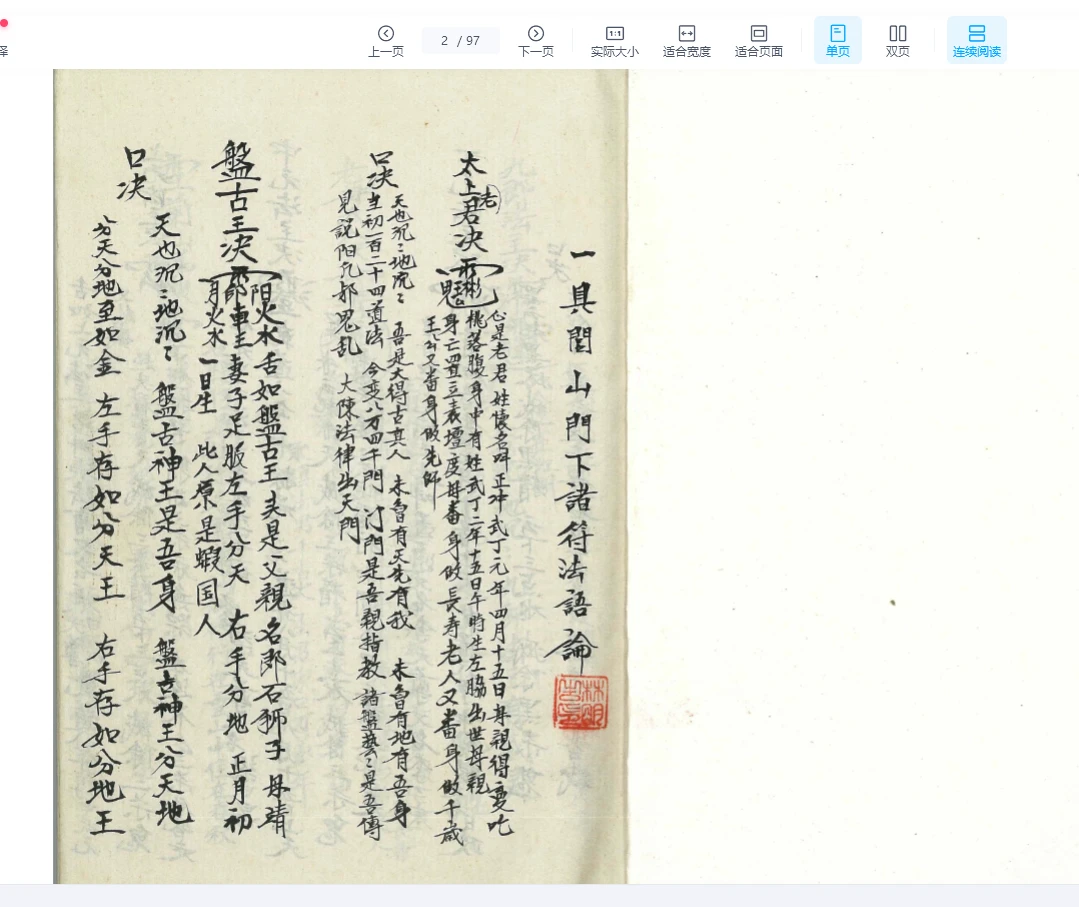 上一页
2 / 97
下一页
实际大小
适合宽度
适合页面
单页
双页
连续阅读
译
一具閭山門下諸符法語論
太上老君决
心是老君姓懷名叫正冲式丁元年四月十五日母親得变吃
桃落腹身中有姓式丁二年十五日午時生左脇出世母親
身亡置立表壇度母番身做長寿老人又番身做千歳
王公又番身做先師
口决
天也沉〻地沉〻 吾是大得古真人 未魯有天先有我 未魯有地有吾身
主初一百二十四道法 今变八万四千門 门門是吾親指教 諸盤藝〻是吾傳
見説阳九邪鬼乱 大陳法律出天門
盤古王决
阳火水 舌如盤古王 夫是父親名郎石獅子 母靖
妻子足服左手分天 右手分地 正月初
月火水 一日生 此人原是蝦国人
口决
天也沉〻地沉〻 盤古神王是吾身 盤古神王分天地
分天分地至如金 左手存如分天王 右手存如分地王